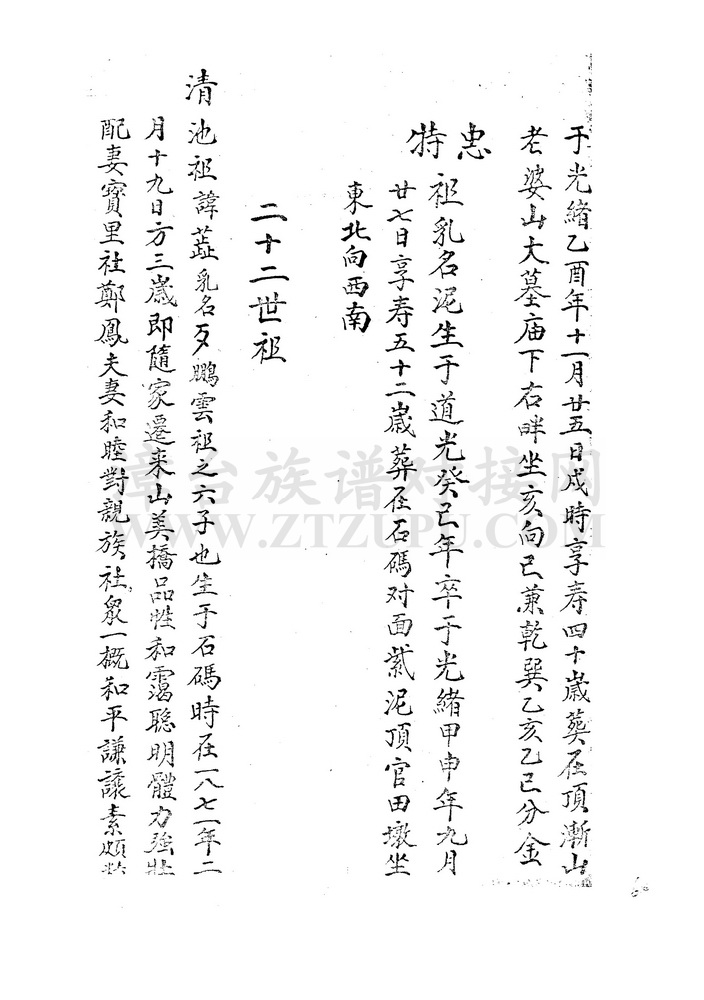 于光緒乙酉年十一月廿五日戌時享寿四十歲葬在頂漸山
老婆山大墓庙下右畔坐亥向巳兼乾巽乙亥乙巳分金
忠特祖乳名泥生于道光癸巳年卒于光緒甲申年九月
廿七日享寿五十二歲葬在石碼对面紫泥頂官田墩坐
東北向西南
二十二世祖
清池祖諱 乳名歹鵬雲祖之六子也生于石碼時在一八七一年二
月十九日方三歲即隨家遷来山美橋品性和靄聡明體力強壯
配妻寶里社鄭鳳夫妻和睦對親族社眾一概和平謙讓素頗
章台族谱对接网
WWW.ZTZUPU.COM
60